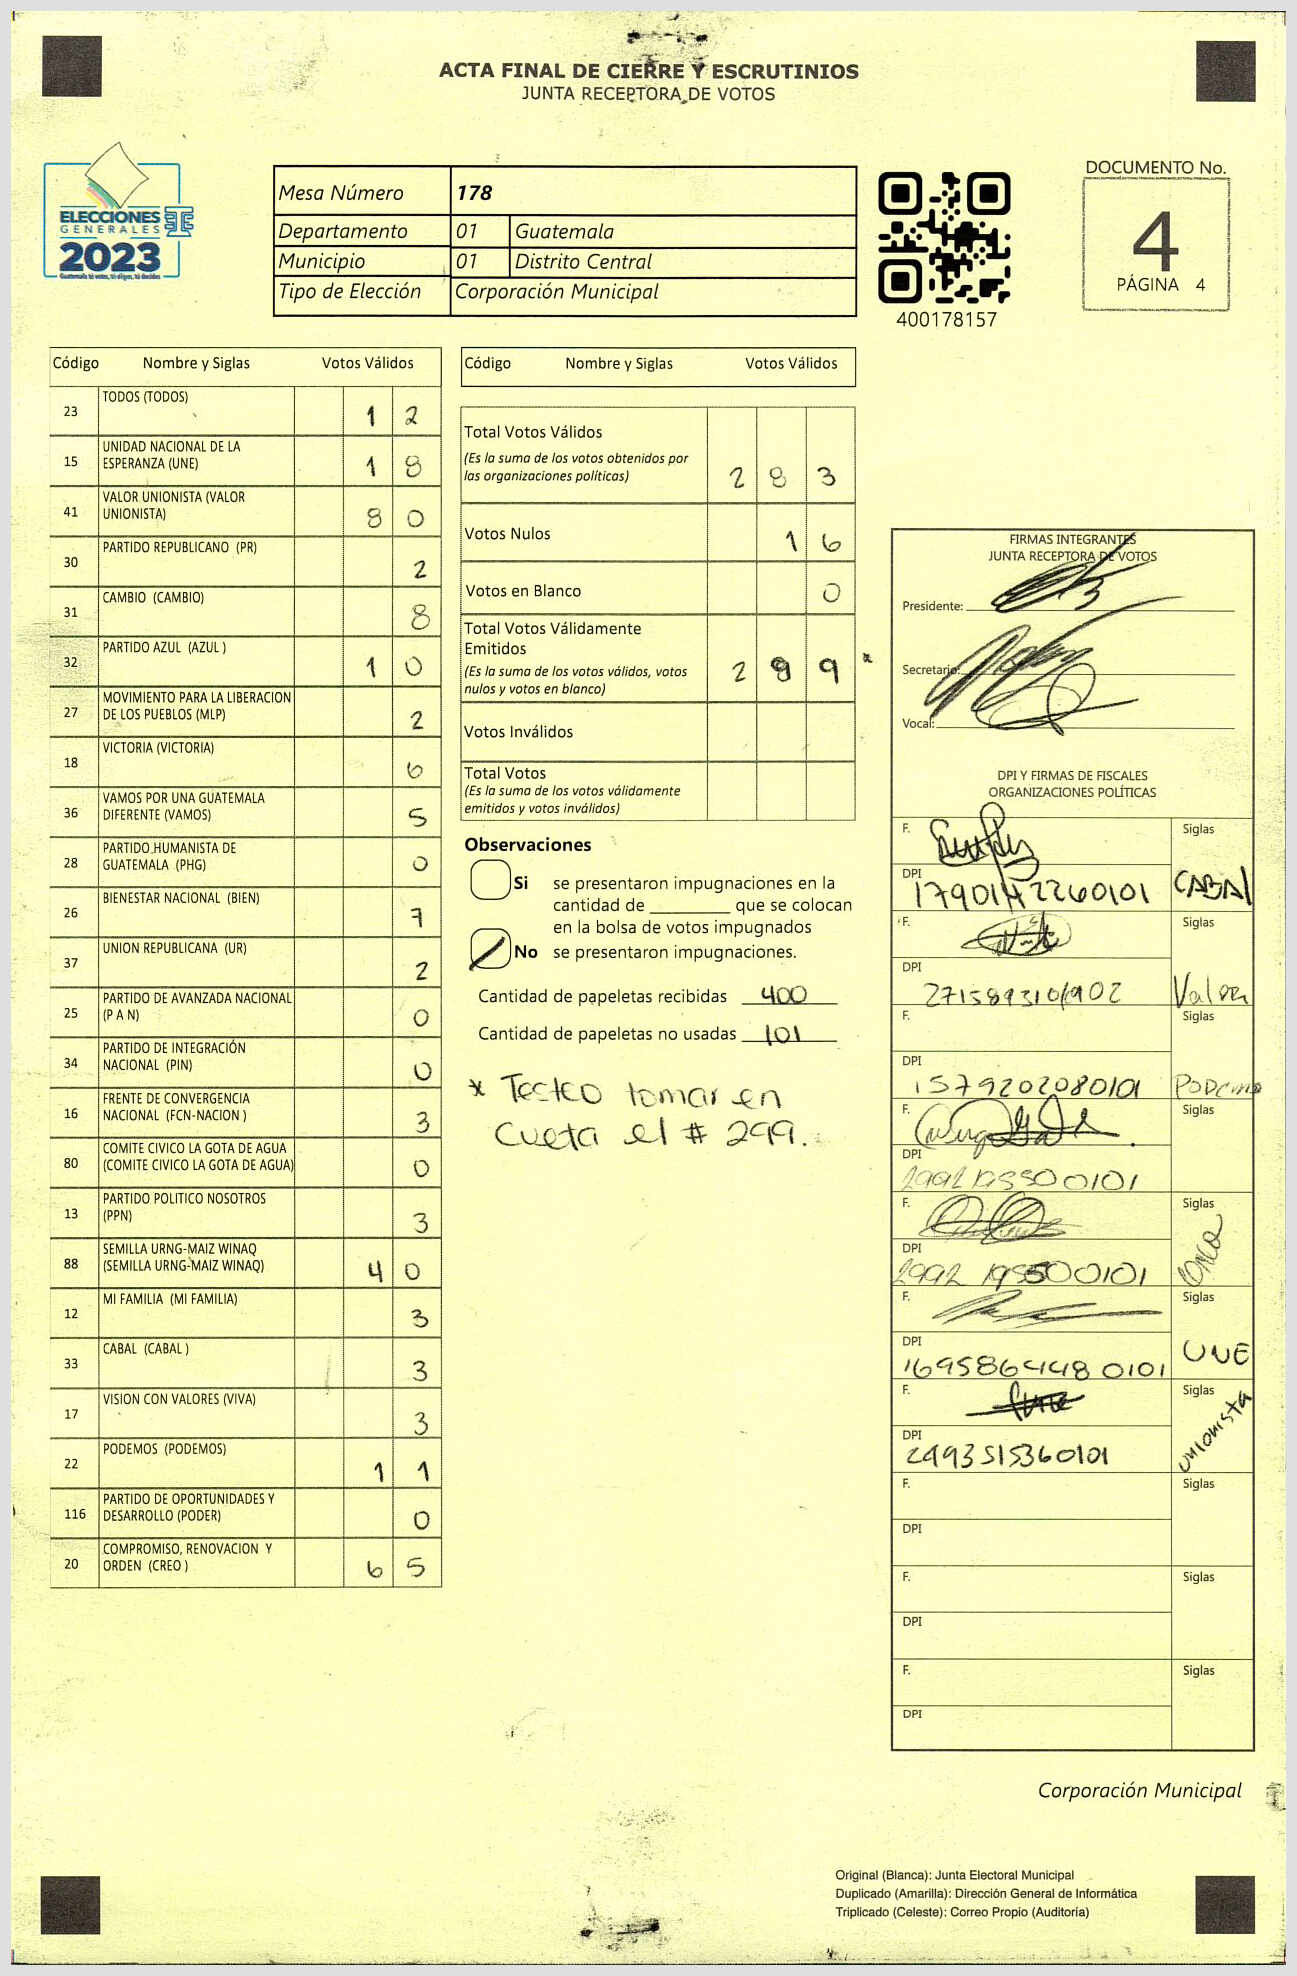 ACTA FINAL DE CIERRE Y ESCRUTINIOS
JUNTA RECEPTORA DE VOTOS
ELECCIONES
GENERALES
2023
Mesa Número 178
Departamento 01 Guatemala
Municipio 01 Distrito Central
Tipo de Elección Corporación Municipal
400178157
DOCUMENTO No.
4
PÁGINA 4
Código Nombre y Siglas Votos Válidos
23 TODOS (TODOS) 1 2
15 UNIDAD NACIONAL DE LA
ESPERANZA (UNE) 1 8
41 VALOR UNIONISTA (VALOR
UNIONISTA) 8 0
30 PARTIDO REPUBLICANO (PR) 2
31 CAMBIO (CAMBIO) 8
32 PARTIDO AZUL (AZUL ) 1 0
27 MOVIMIENTO PARA LA LIBERACION
DE LOS PUEBLOS (MLP) 2
18 VICTORIA (VICTORIA) 6
36 VAMOS POR UNA GUATEMALA
DIFERENTE (VAMOS) 5
28 PARTIDO HUMANISTA DE
GUATEMALA (PHG) 0
26 BIENESTAR NACIONAL (BIEN) 7
37 UNION REPUBLICANA (UR) 2
25 PARTIDO DE AVANZADA NACIONAL
(P A N) 0
34 PARTIDO DE INTEGRACIÓN
NACIONAL (PIN) 0
16 FRENTE DE CONVERGENCIA
NACIONAL (FCN-NACION ) 3
80 COMITE CIVICO LA GOTA DE AGUA
(COMITE CIVICO LA GOTA DE AGUA) 0
13 PARTIDO POLITICO NOSOTROS
(PPN) 3
88 SEMILLA URNG-MAIZ WINAQ
(SEMILLA URNG-MAIZ WINAQ) 4 0
12 MI FAMILIA (MI FAMILIA) 3
33 CABAL (CABAL ) 3
17 VISION CON VALORES (VIVA) 3
22 PODEMOS (PODEMOS) 1 1
116 PARTIDO DE OPORTUNIDADES Y
DESARROLLO (PODER) 0
20 COMPROMISO, RENOVACION Y
ORDEN (CREO ) 6 5
Código Nombre y Siglas Votos Válidos
Total Votos Válidos
(Es la suma de los votos obtenidos por
las organizaciones políticas) 2 8 3
Votos Nulos 1 6
Votos en Blanco 0
Total Votos Válidamente
Emitidos
(Es la suma de los votos válidos, votos
nulos y votos en blanco) 2 9 9 *
Votos Inválidos
Total Votos
(Es la suma de los votos válidamente
emitidos y votos inválidos)
Observaciones
Si se presentaron impugnaciones en la
cantidad de ________ que se colocan
en la bolsa de votos impugnados
No se presentaron impugnaciones.
Cantidad de papeletas recibidas 400
Cantidad de papeletas no usadas 101
* Testeo tomar en
cueta el # 299.
FIRMAS INTEGRANTES
JUNTA RECEPTORA DE VOTOS
Presidente:
Secretario:
Vocal:
DPI Y FIRMAS DE FISCALES
ORGANIZACIONES POLÍTICAS
F. Siglas
DPI CABAL
F. Siglas
DPI
Valor
F. Siglas
DPI
1579202080101 Podemos
F. Siglas
DPI
F. Siglas
DPI
2992 195500101
F. Siglas
DPI UNE
1695864480101
F. Siglas
DPI unionista
2493515360101
F. Siglas
DPI
F. Siglas
DPI
F. Siglas
DPI
Corporación Municipal
Original (Blanca): Junta Electoral Municipal
Duplicado (Amarilla): Dirección General de Informática
Triplicado (Celeste): Correo Propio (Auditoría)